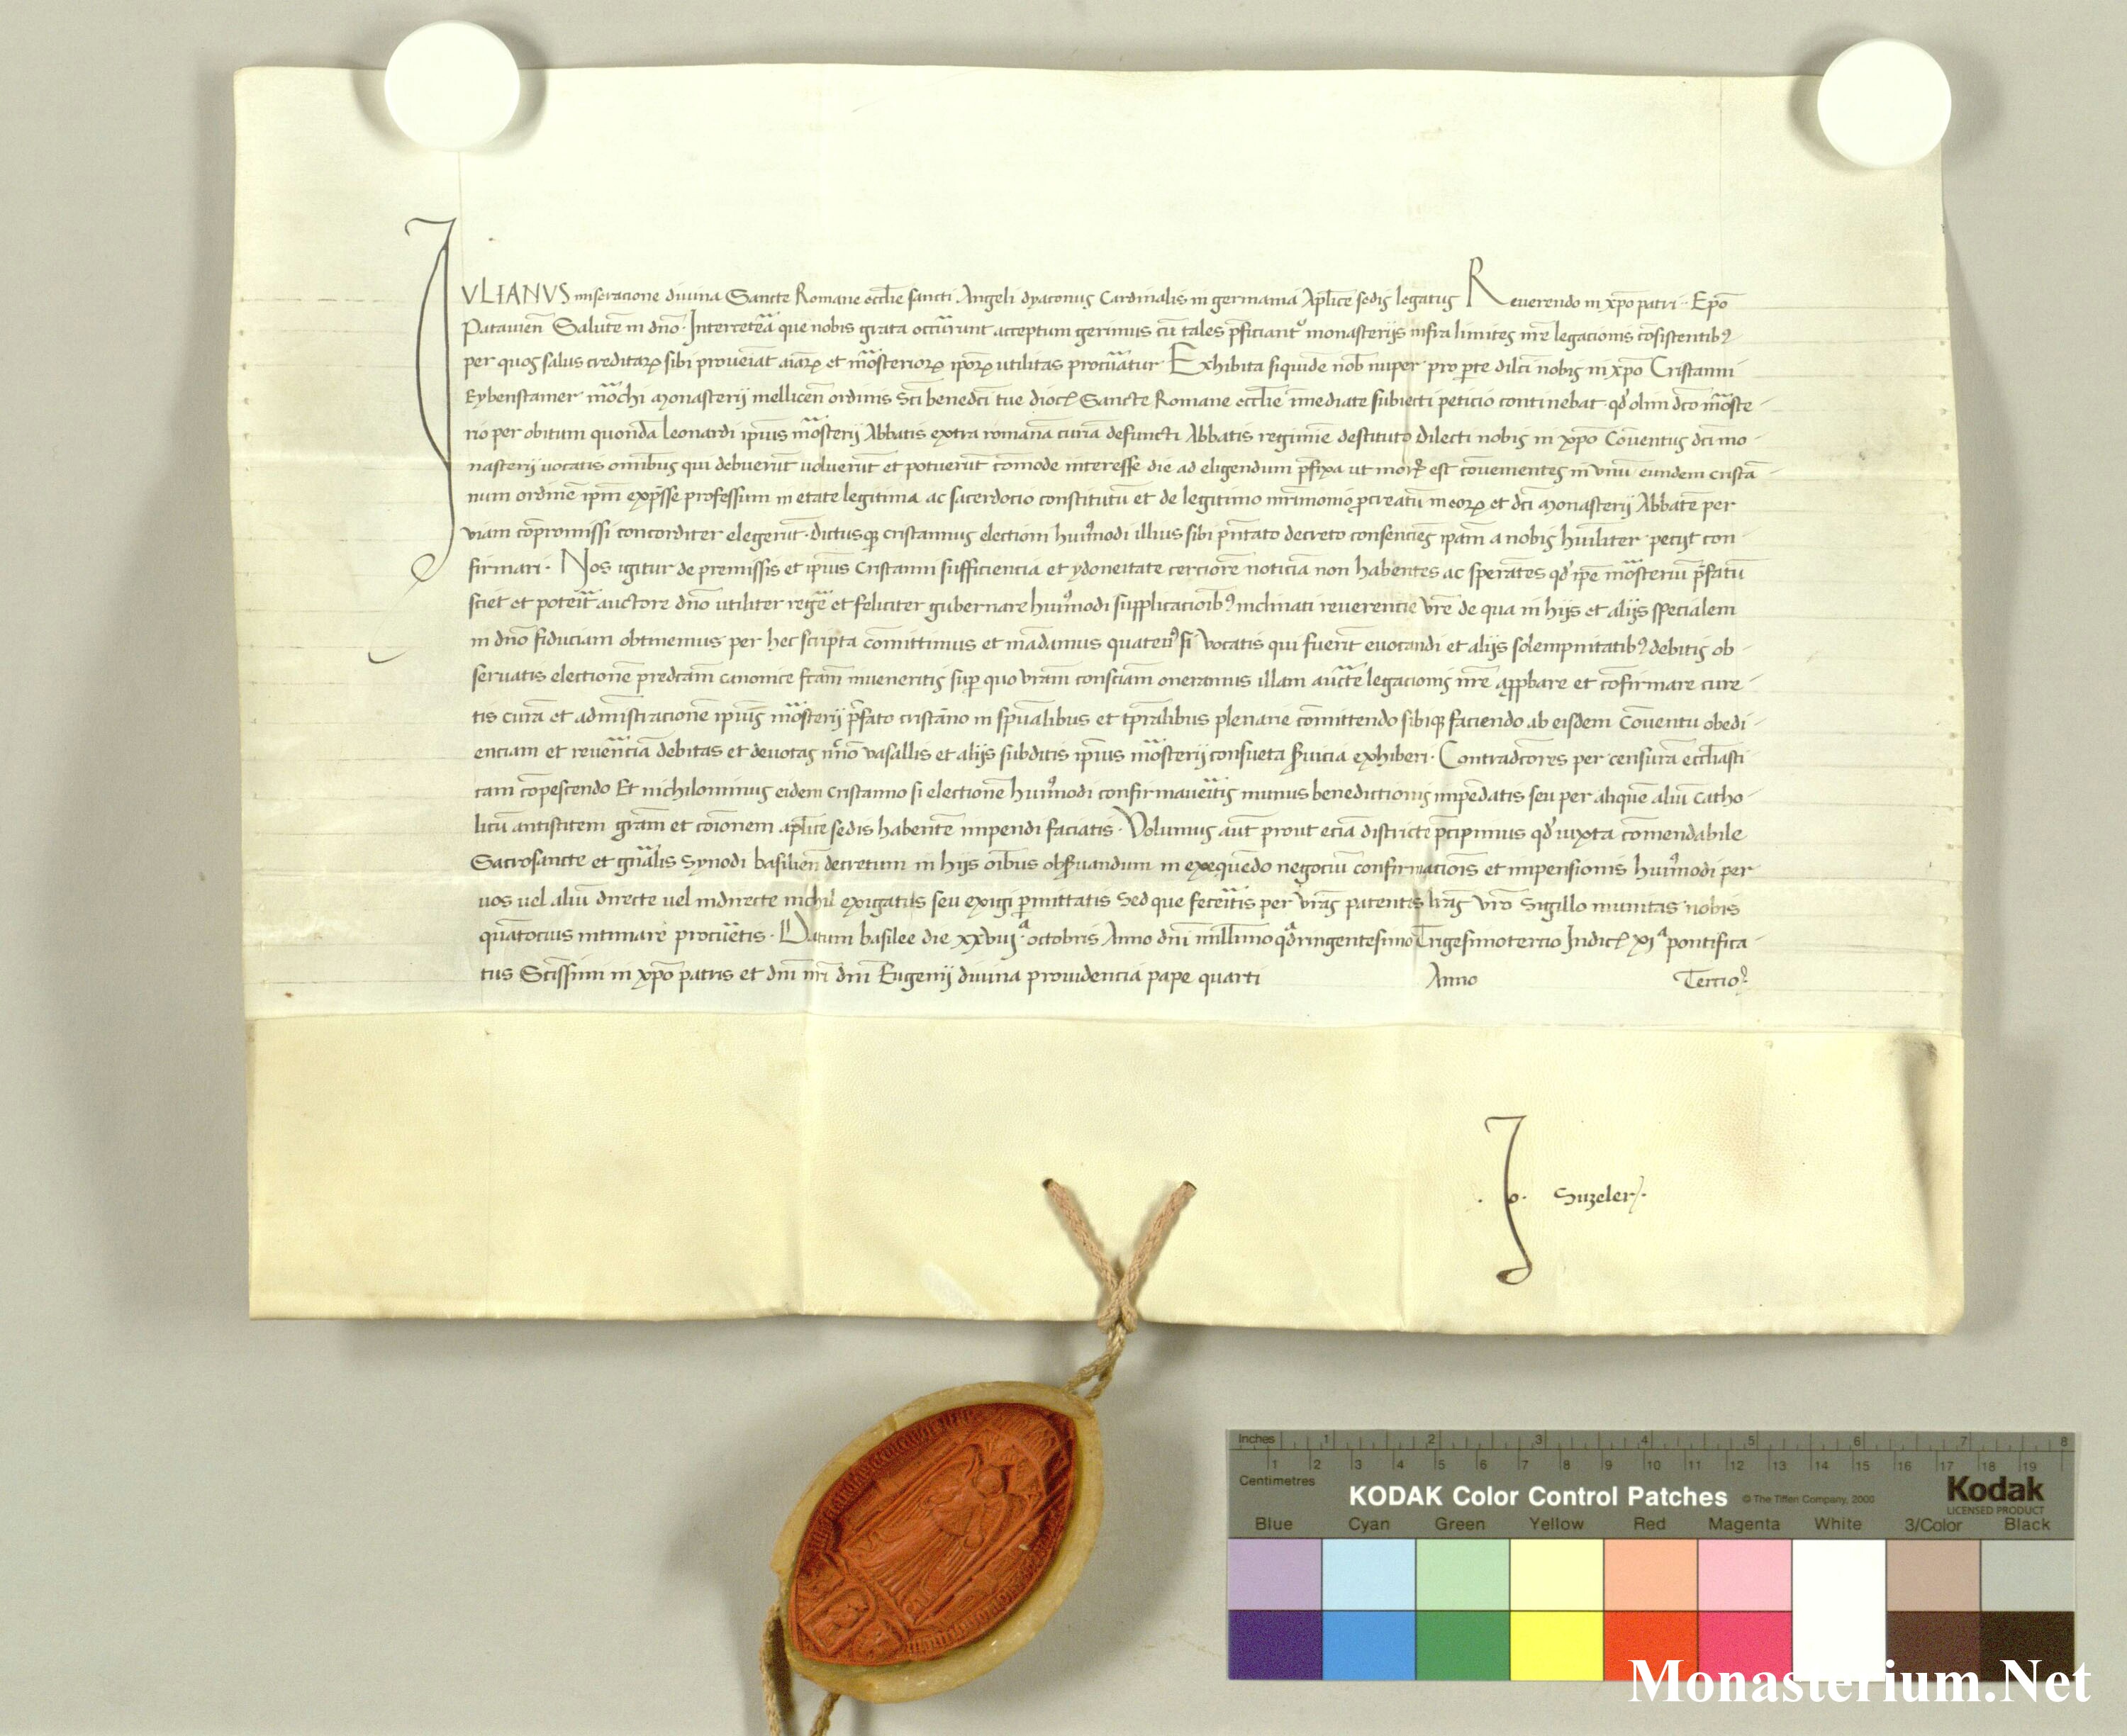 IULIANUS miseracione divina Sancte Romane eccl̄ie sancti Angeli dyaconus Cardinalis in germania Ap̄lice sedis legatus Reverendo in xp̄o patri ·· Ep̄o
Patavien̄ Salutē in dn̄o · Inter cetēa que nobis grata occūrunt acceptum gerimus cū tales p̄ficiant᷑ monasterijs infra limites nr̄e legacionis cōsistentib⁹
per quos salus creditaꝝ sibi proveīat aīaꝝ et mōsterioꝝ ip̄oꝝ utilitas procūatur Exhibita siquidē nob̄ nuper pro ꝑte dilc̄i nobis in xp̄o Cristanni
Eybenstainer mōchi monasterij mellicen̄ ordinis Sc̄i benedc̄i tue dioc̄ Sancte Romane eccl̄ie īmediate subiecti peticio continebat qd̓ olim dc̄o mōste-
rio per obitum quondā leonardi ip̄ius mōsterij Abbatis extra romanā curiā defuncti Abbatis regimīe destituto Dilecti nobis in xp̄o Cōventus dc̄i mo-
nasterij vocatis omībus qui debuerūt voluerūt et potuerūt cōmode interesse die ad eligendum p̄fixa ut moꝝ est cōvenientes in vnū eundem cristā-
num ordinē ip̄m exp̄sse professum in etate legitima ac sacerdocio constitutū et de legitimo mr̄imonio ꝓcreatū in eoꝝ et dc̄i monasterij Abbatē per
viam cōpromissi concorditer elegerūt · dictusqꝫ cristannus electioni hui⁹modi illius sibi pn̄tato decreto consenciēs ip̄am a nobis hūiliter pecijt con-
firmari · Nos igitur de premissis et ip̄ius Cristanni sufficiencia et ydoneitate cerciorē noticiā non habentes ac sperātes qd̓ ip̄e mōsteriū p̄fatū
sciet et poteīt auctore dn̄o utiliter regēe et feliciter gubernare hui⁹modi supplicacioīb⁹ inclinati reverencie vr̄e de qua in hijs et alijs specialem
in dn̄o fiduciam obtinemus per hec scripta cōmittimus et mādamus quaten⁹ si vocatis qui fuerīt evocandi et alijs solempnitatib⁹ debitis ob-
servatis electionē predc̄am canonice fc̄am inveneritis suꝑ quo vr̄am consciām oneramus illam auct̄e legacionis nr̄e apꝓbare et cōfirmare cure-
tis curā et administracionē ip̄ius mōsterij p̄fato cristāno in spūalibus et tp̄ralibus plenarie cōmittendo sibiqꝫ faciendo ab eisdem Cōventu obedi-
enciam et revēnciā debitas et devotas nc̄nō vasallis et alijs subditis ip̄ius mōsterij consueta s̓vicia exhiberi · Contradc̄ores per censurā eccl̄iasti-
cam cōpescendo Et nichilominus eidem cristanno si electionē hui⁹modi confirmaveītis munus benedictionis impēdatis seu per aliquē aliū catho-
licū antistitem gr̄am et cōionem ap̄lice sedis habentē impendi faciatis · Volumus aut̄ prout eciā districte p̄cipimus qd̓ iuxta cōmendabile
Sacrosancte et gn̄alis synodi basilien̄ decretum in hijs oīb̄us obs̓vandum in exequēdo negociū confirmacioīs et impensionis hui⁹modi per
vos vel aliū directe vel indirecte nichil exigatis seu exigi ꝑmittatis Sed que feceītis per vr̄as patentes lr̄as vr̄o Sigillo munitas nobis
quātocius intimare procūetis · Datum basilee die xxviijᵃ octobris Anno dn̄i mill̄imo qᵃdringentesimo Trigesimotercio Indict̄ xiᵃ pontifica-
tus Sc̄issimi in xp̄o patris et dn̄i nr̄i dn̄i Eugenij divina providencia pape quarti Anno Tercio
· Jo · Suzeler ·
Inches 1 2 3 4 5 6 7 8
1 2 3 4 5 6 7 8 9 10 11 12 13 14 15 16 17 18 19
Centimetres
KODAK Color Control Patches © The Tiffen Company, 2000 Kodak
LICENSED PRODUCT
Blue Cyan Green Yellow Red Magenta White 3/Color Black
Monasterium.Net